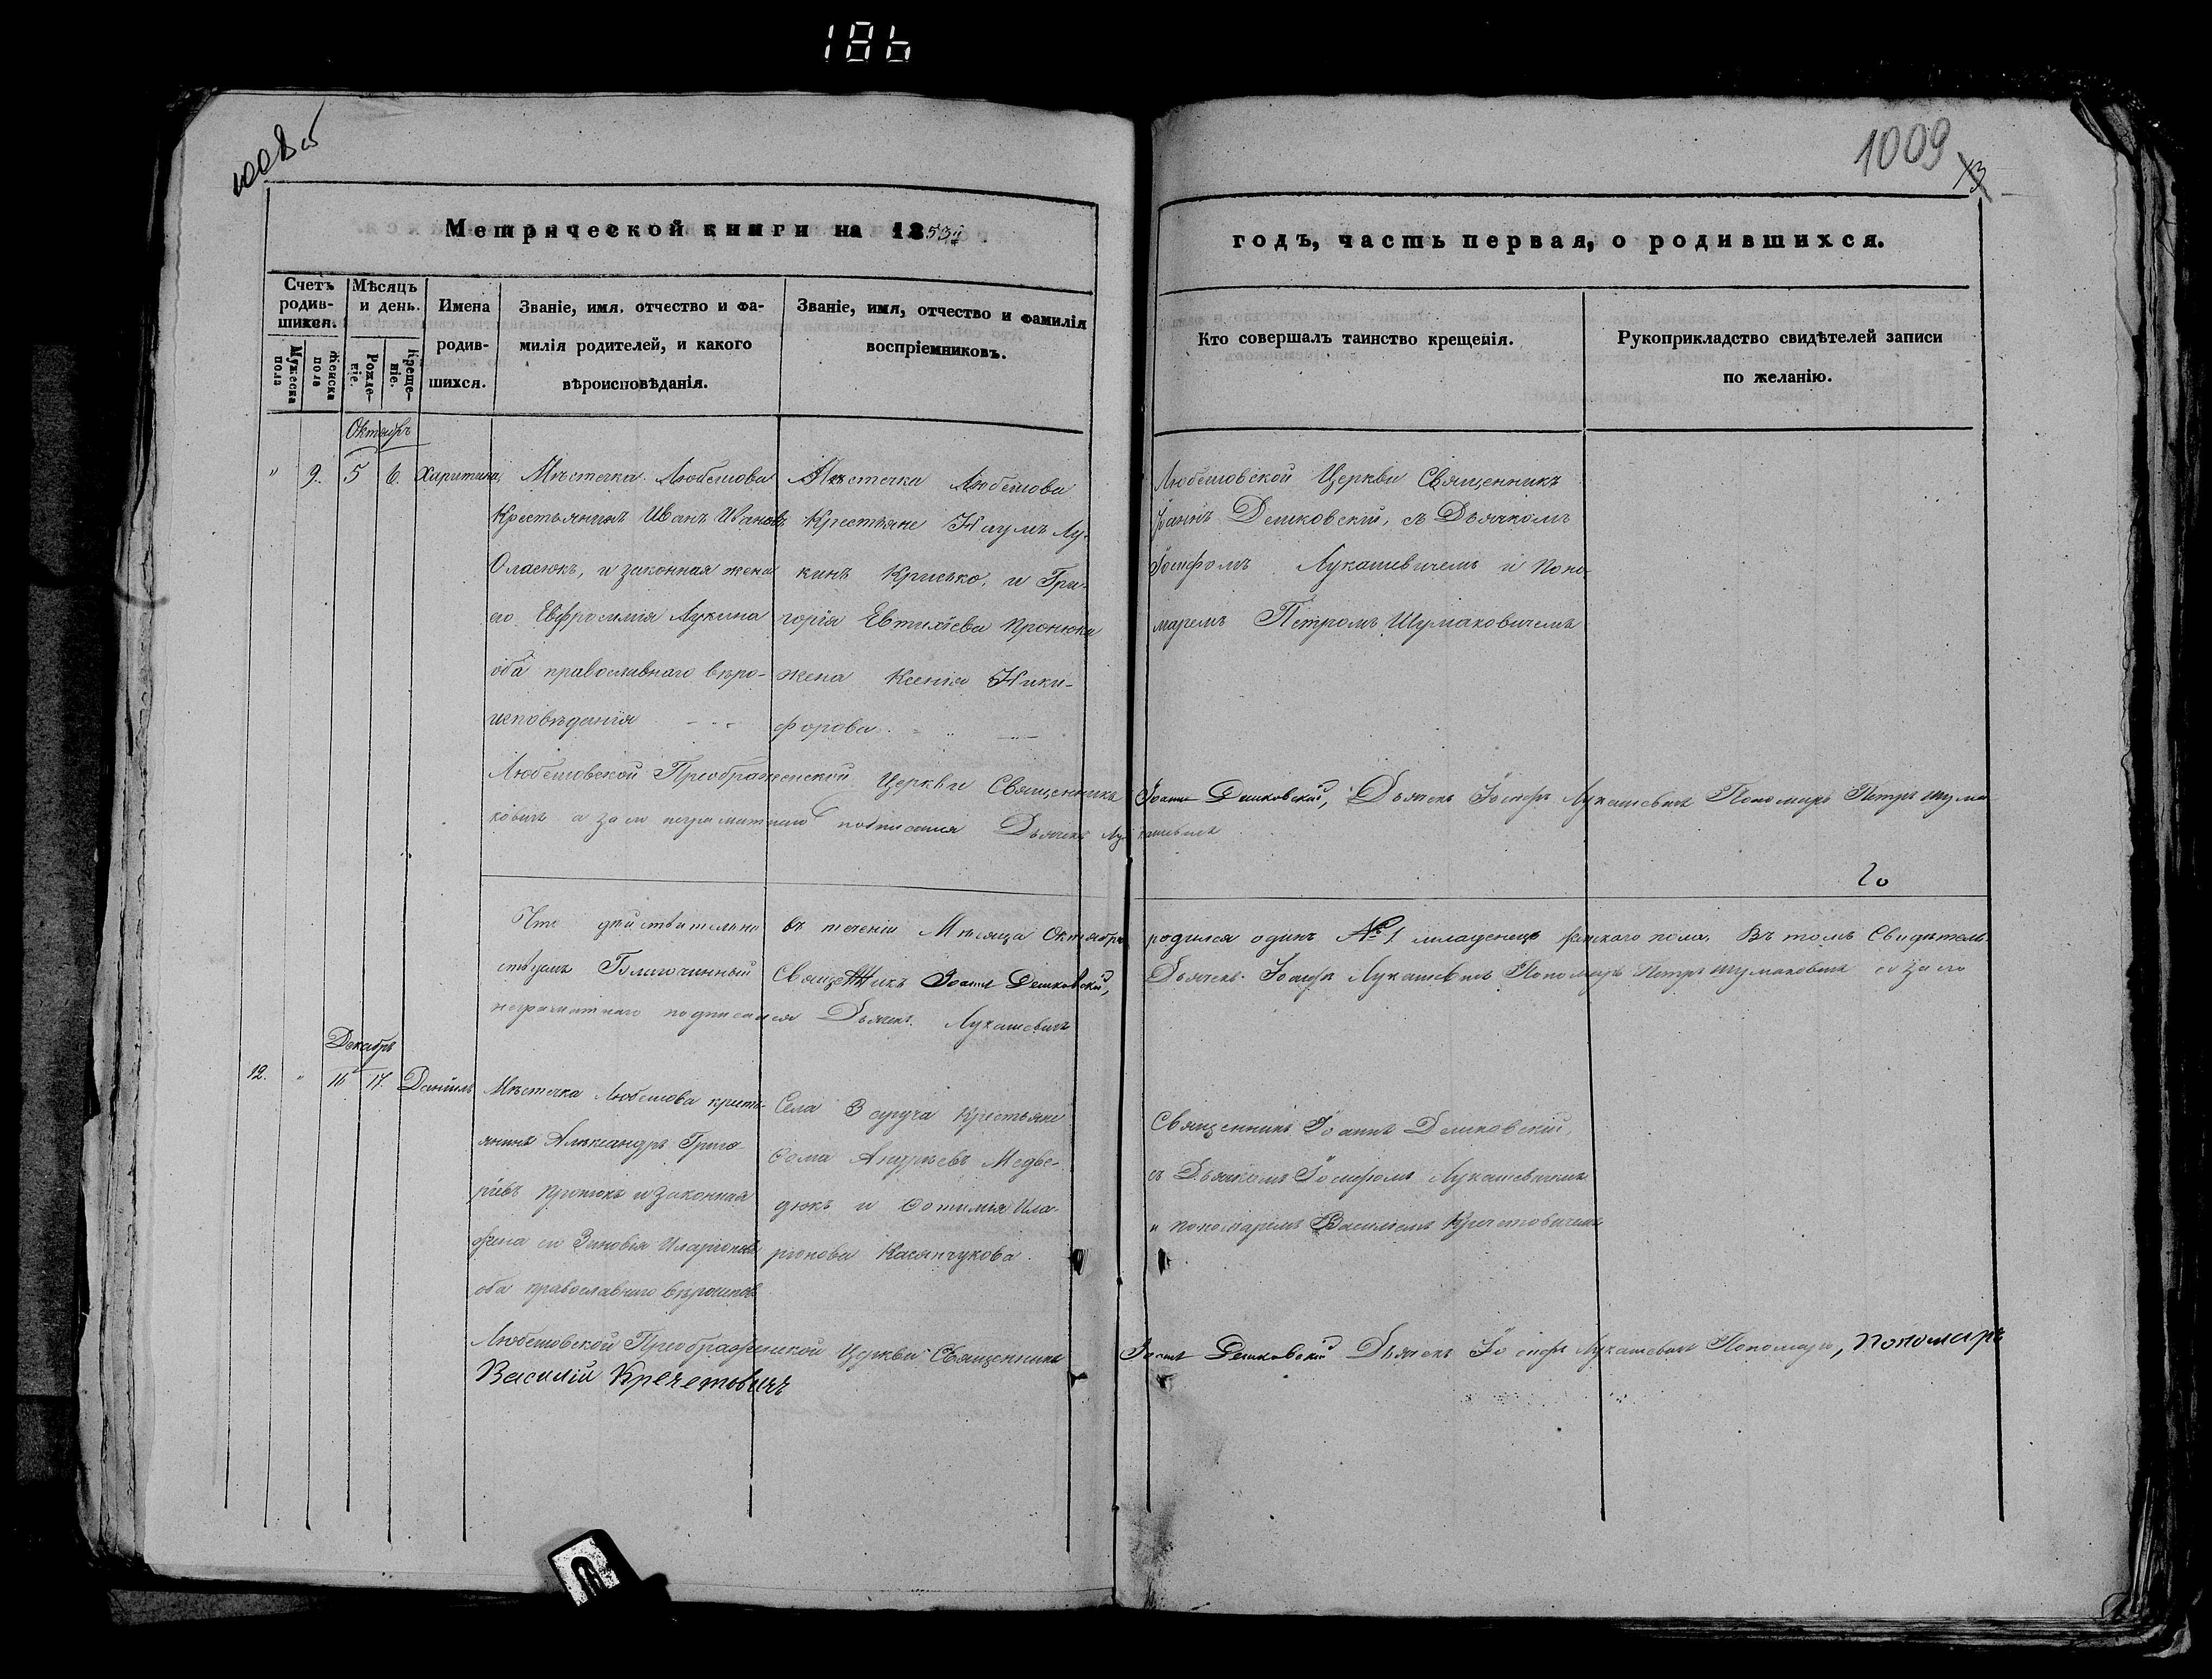 186
1008 об
1009
13
Метрической книги на 1853й
годъ, часть первая, о родившихся.
Счетъ родившихся.
Мужеска пола
Женска пола
Мѣсяцъ и день.
Рожденіе.
Крещеніе.
Имена родившихся.
Званіе, имя, отчество и фамилія родителей, и какого вѣроисповѣданія.
Званіе, имя, отчество и фамилія воспріемниковъ.
Кто совершалъ таинство крещенія.
Рукоприкладство свидѣтелей записи по желанію.
Октябрь
" 9. 5 6. Харитина
Мѣстечка Любешова
Крестьянинъ Иванъ Ивановъ
Оласюкъ, и законная жена
его Евфросинія Лукина
оба православнаго вѣро-
исповѣданія
Мѣстечка Любешова
Крестьяне Наумъ Лу-
кинъ Крисько, и Гри-
горія Евтихіева Пронюка
жена Ксенія Ники-
форова
Любешовской Церкви Священникъ
Іоаннъ Демковскій, съ Дьячкомъ
Іосифомъ Лукашевичемъ и Поно-
маремъ Петромъ Шумаковичемъ
Любешовской Преображенской Церкви Священникъ Іоаннъ Демковскій, Дьячекъ Іосифъ Лукашевичъ Пономарь Петръ Шума
ковичъ а за его неграмотнаго подписался Дьячекъ Лукашевичъ
Что дѣйствительно въ теченіи Мѣсяца Октября родился одинъ № 1 младенецъ женскаго пола, Въ томъ Свидѣтель-
ствуемъ Благочинный Священникъ Іоаннъ Демковскій, Дьячекъ Іосифъ Лукашевичъ Пономарь Петръ Шумаковичъ а за его
неграмотнаго подписался Дьячекъ Лукашевичъ
Декабрь
12. " 16 17. Даніилъ
Мѣстечка Любешова кресть-
янинъ Александръ Григо-
ріевъ Пронюкъ и законная
жена его Зиновія Иларіонова
оба православнаго вѣроиспов
Села Заруча Крестьяне
Фома Андреевъ Медве-
дюкъ и Фотинія Ила-
ріонова Касянчукова.
Священникъ Іоаннъ Демковскій,
съ Дьячкомъ Іосифомъ Лукашевичемъ
и пономаремъ Василіемъ Кречетовичемъ
Любешовской Преображенской Церкви Священникъ Іоаннъ Демковскій Дьячекъ Іосифъ Лукашевичъ Пономарь, Пономарь
Василій Кречетовичъ